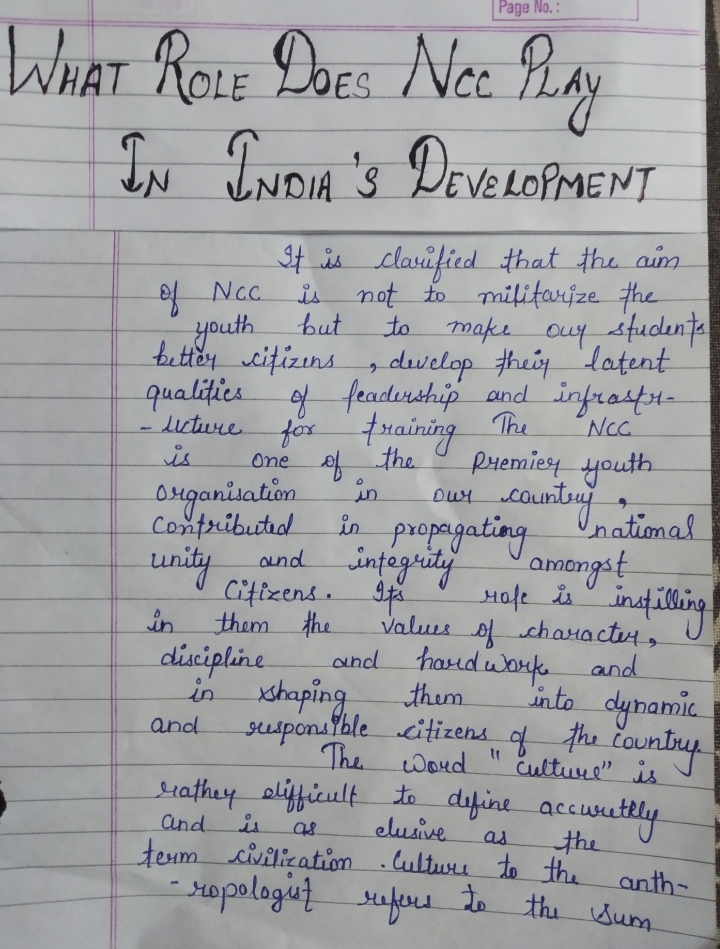 Page No. :
WHAT ROLE DOES NCC PLAY
IN INDIA'S DEVELOPMENT
It is clarified that the aim
of NCC is not to militarize the
youth but to make our students
better citizens , develop their latent
qualities of leadership and infrastr-
- ucture for training The NCC
is one of the premier youth
organisation in our country ,
contributed in propagating national
unity and integrity amongst
Citizens. Its role is instilling
in them the values of character,
discipline and hardwork and
in shaping them into dynamic
and responsible citizens of the country.
The word "culture" is
rather difficult to define accuretely
and is as elusive as the
term civilization . Culture to the anth-
- ropologist refers to the sum